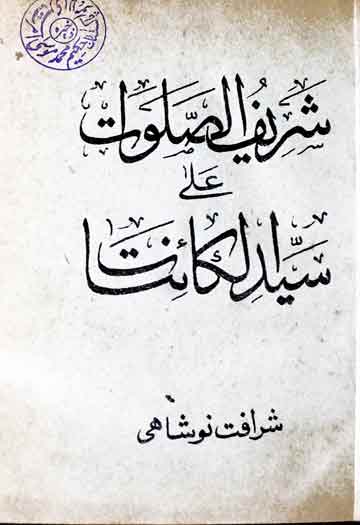 شریف الصلوات
علیٰ
سید الکائنات
شرافت نوشاہی